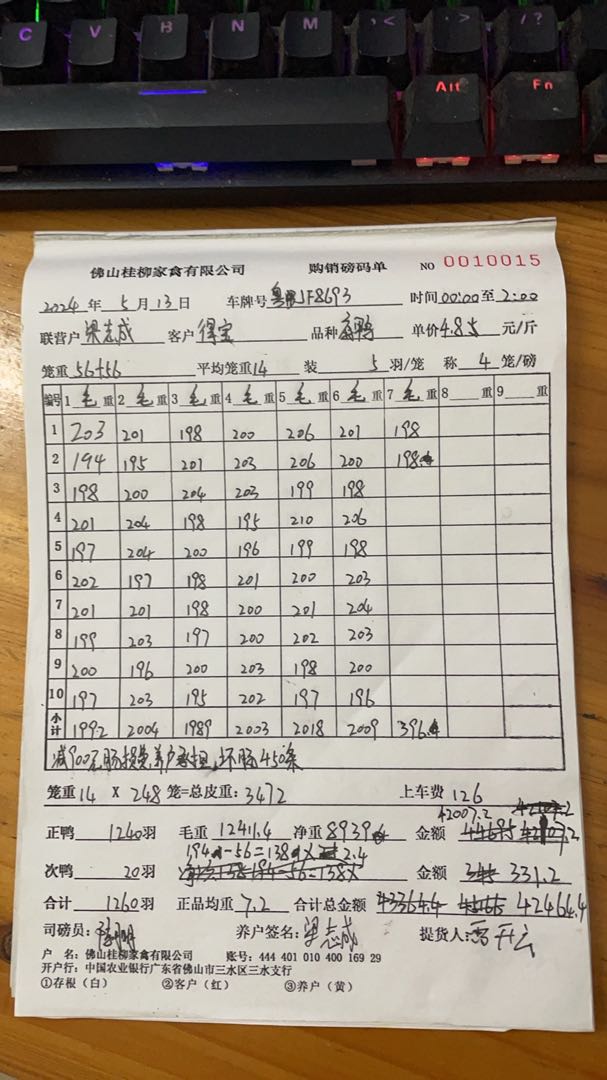 C V B N M , < . > / ?
Alt Fn
佛山桂柳家禽有限公司 购销磅码单 NO 0010015
2024 年 5 月 13 日 车牌号 粤 JF8693 时间 00:00 至 2:00
联营户 梁志成 客户 得宝 品种 鸭 单价 4.85 元/斤
笼重 56+56 平均笼重 14 装 5 羽/笼 称 4 笼/磅
编号 1 毛 重 2 毛 重 3 毛 重 4 毛 重 5 毛 重 6 毛 重 7 毛 重 8 重 9 重
1 203 201 198 200 206 201 198
2 194 195 201 203 206 200 198
3 198 200 204 203 199 198
4 201 204 198 195 210 206
5 197 204 200 196 199 198
6 202 197 198 201 200 203
7 201 201 198 200 201 204
8 199 203 197 200 202 203
9 200 196 200 203 198 200
10 197 203 195 202 197 196
小计 1992 2004 1989 2003 2018 2009 396
减900元肠损失养户承担,坏肠450条
笼重 14 X 248 笼=总皮重: 3472 上车费 126
42007.2
正鸭 1240 羽 毛重 12411.4 净重 8939 金额
194-56=138 2.4
次鸭 20 羽 金额 331.2
合计 1260 羽 正品均重 7.2 合计总金额 43364.4 42464.4
司磅员: 养户签名: 梁志成 提货人:
户 名: 佛山桂柳家禽有限公司 账号: 444 401 010 400 169 29
开户行: 中国农业银行广东省佛山市三水区三水支行
①存根(白) ②客户(红) ③养户(黄)